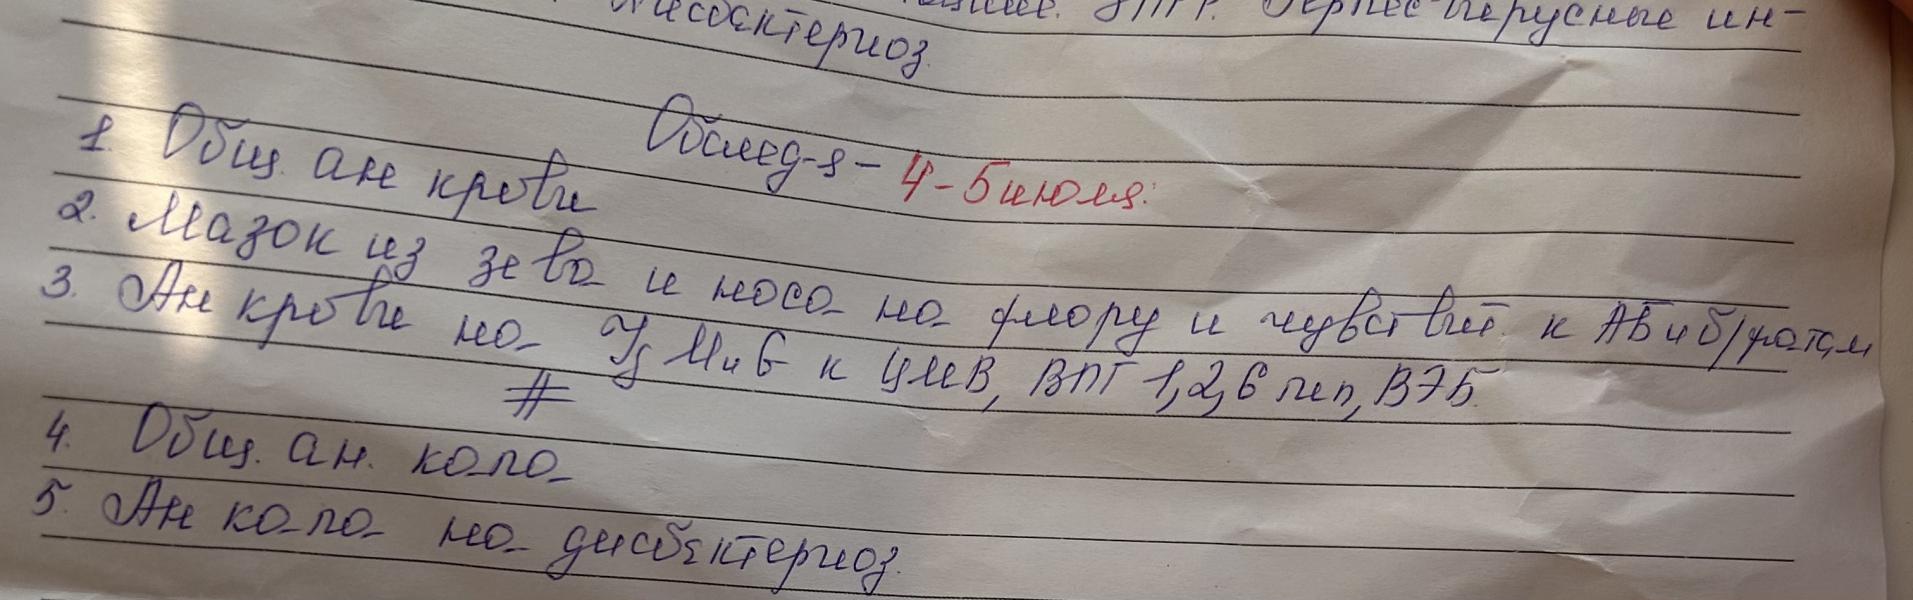 ЗПРР. Герпес-вирусные ин-
дисбактериоз.
Обслед-я - 4-5 июля:
1. Общ. ан крови
2. Мазок из зева и носа на флору и чувствит. к АБ и б/фагам
3. Ан крови на Jg M и G к ЦМВ, ВПГ 1,2,6 тип, ВЭБ.
#
4. Общ. ан. кала
5. Ан кала на дисбактериоз.